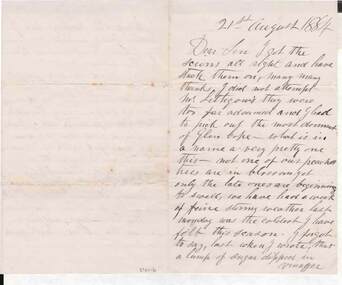 21st August 1884
Dear Sir I got the
scions all right and have
stuck them on, many many
thanks, I did not attempt
Mr they were
too far advanced and I had
to pick out the most dormant
of Glen hope - what is in
a name a very pretty one
this - not one of our peach
trees are in blossom yet
only the late ones are beginning
to swell, we have had a week
of fierce stormy weather last
monday was the coldest I have
felt this season. I forgot
to say, last when I wrote, that
a lump of sugar dipped in
vinegar